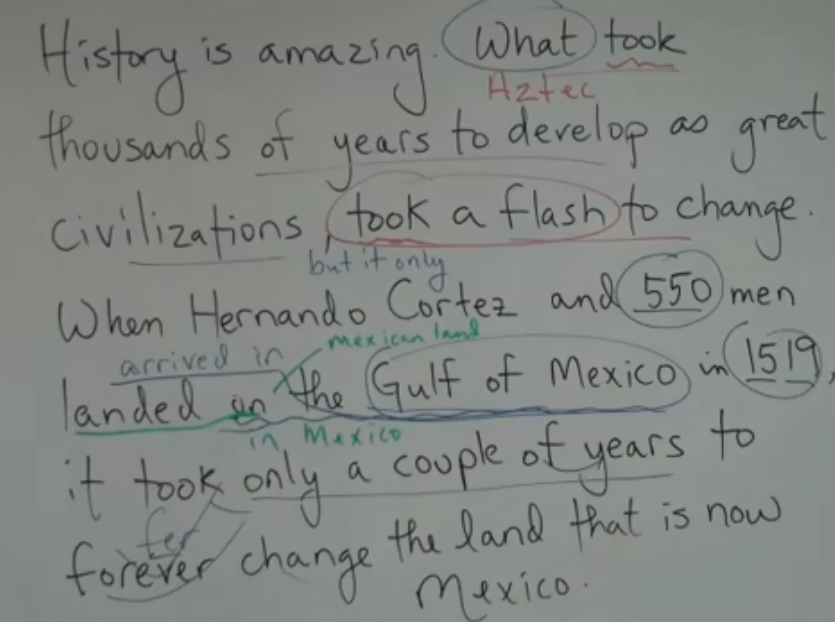 History is amazing. What took
Aztec
thousands of years to develop as great
civilizations, took a flash to change.
but it only
When Hernando Cortez and 550 men
mexican land
arrived in
landed in the Gulf of Mexico in 1519,
in Mexico
it took only a couple of years to
fer
forever change the land that is now
Mexico.